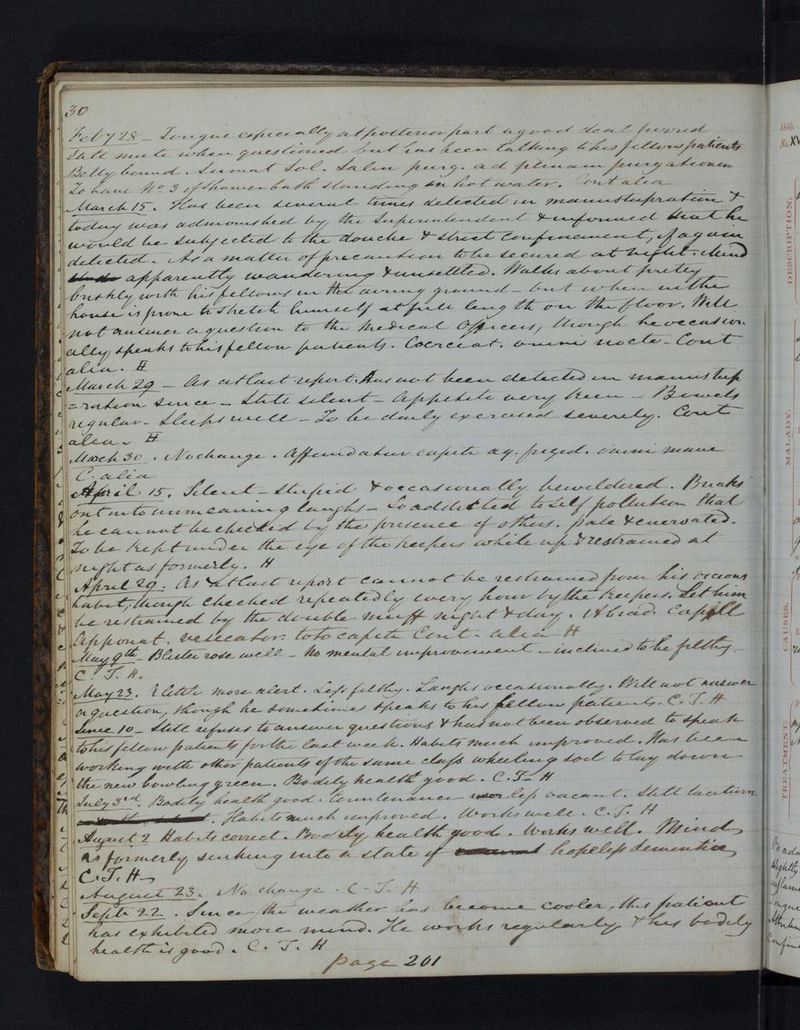 30
Feby 28 – Tongue especially at posterior part a good deal furred
Still mute when questioned but has been talking to his fellow patients
Belly bound. Sumat Sol. Salin purg. ad plenam purgationem
To have No 3 of shower bath standing in hot water. Cont alia
March 15. Has been several times detected in manustupration &
today was admonished by the Superintendent & informed that he
would be subjected to the douche & strict confinement, if again
detected. As a matter of precaution to be secured at night. Mind
apparently wandering & unsettled. Walks about pretty
briskly with his fellows in the airing ground – but when in the
house is prone to stretch himself at full length on the floor. Will
not answer a question to the Medical Officers, though he occasion
ally speaks to his fellow patients. Coerceat. omni nocte – Cont
alia. H
March 29 – As at last report. Has not been detected in manustup
=ration since – Still silent – Appetite very keen – Bowels
regular – Sleeps well – To be daily exercised severely. Cont
alia – H
March 30. No change. Affundatur capite aq. frigid. omni mane
C. alia
April 15. Silent – Stupid & occasionally bewildered. Breaks
out into unmeaning laughs – So addicted to self pollution that
he cannot be checked by the presence of others. pale & enervated.
To be kept under the eye of the keepers while up & restrained at
night as formerly. H
April 29. As at last report cannot be restrained from his vicious
habit, though checked repeatedly every hour by the keepers. Let him
be restrained by the double muff night & day. Abrad. Capill
Apponat. vesicator. toto capite Cont. alia H
May 9th – Blister rose well – No mental improvement – inclined to be filthy –
C. T. H.
May 23. Little more alert. Less filthy. Laughs occasionally. Will not answer
a question, though he sometimes speaks to his fellow patients. C. T. H
June 10 – Still refuses to answer questions & has not been observed to speak
to his fellow patients for the last week. Habits much improved. Has been
working with other patients of the same class wheeling soil to lay down
the new bowling green. Bodily health good. C. T. H
July 3rd. Bodily health good. Countenance less vacant. Still taciturn
. Habits much improved. Works well. C. T. H
August 2 Habits correct. Bodily health good. Works well. Mind
as formerly sinking into a state of hopeless dementia
C. T. H –
August 23. No change. C. T. H
Septr 22. Since the weather has become cooler, this patient
has exhibited more mind. He works regularly & his bodily
health is good. C. T. H
page 201
DESCRIPTION.
MALADY.
CAUSES.
TREATMENT.